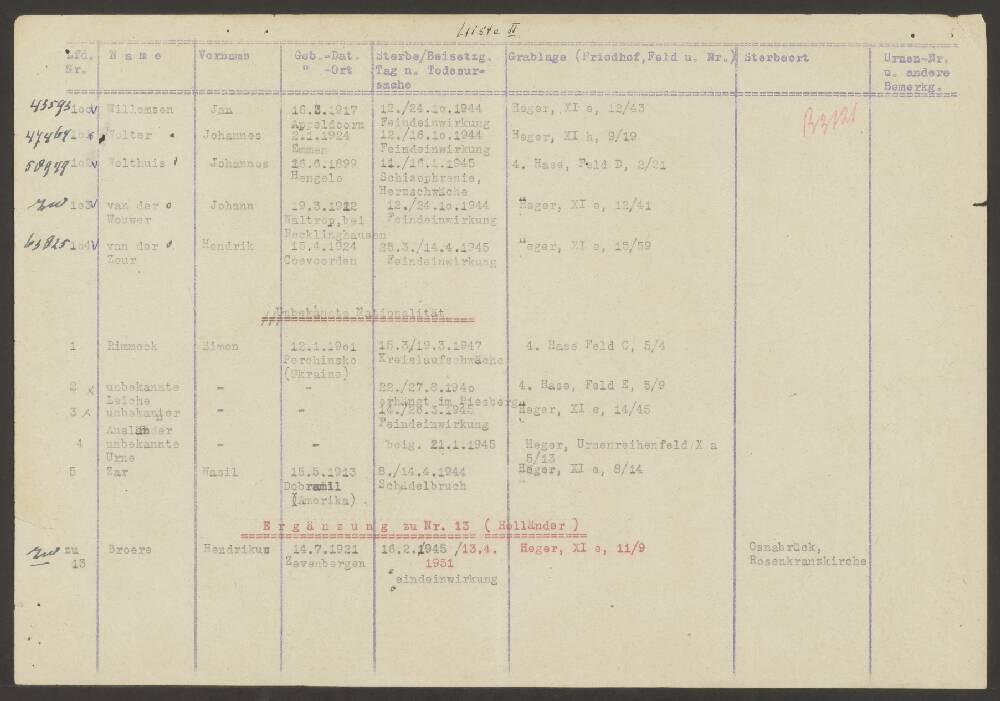 Liste II
Lfd. Nr. Name Vorname Geb.-Dat. Sterbe/Beisetzg. Grablage (Friedhof, Feld u. Nr.) Sterbeort Urnen-Nr.
" -Ort Tag u. Todesur- u. andere
sache Bemerkg.
B3121
43593 1oo Willemsen Jan 16.3.1917 12./24.1o.1944 Heger, XI e, 12/43
Appeldoorn Feindeinwirkung
Wolter Johannes 2.1.1924 12./16.1o.1944 Heger, XI h, 9/19
Emmen Feindeinwirkung
1o2 Wolthuis Johannes 26.6.1899 11./16.1.1945 4. Hase, Feld D, 2/21
Hengelo Schizophrenie,
Herzschwäche
1o3 van der Johann 19.3.1912 12./24.1o.1944 Heger, XI e, 12/41
Wouwer Waltrop, bei Feindeinwirkung
Recklinghausen
63825 1o4 van der Hendrik 15.4.1924 25.3./14.4.1945 Heger, XI e, 15/59
Zour Coevoorden Feindeinwirkung
Unbekannte Nationalität
1 Rimmeck Simon 12.1.19o1 15.3/19.3.1947 4. Hase Feld C, 5/4
Perehinsko Kreislaufschwäche
(Ukraine)
2 x unbekannte - - 22./27.8.194o 4. Hase, Feld E, 5/9
Leiche erhängt im Piesberg
3 x unbekannter - - 14./26.3.1945 Heger, XI e, 14/45
Ausländer Feindeinwirkung
4 unbekannte - - beig. 21.1.1945 Heger, Urnenreihenfeld X a
Urne 5/13
5 Zar Wasil 15.5.1913 8./14.4.1944 Heger, XI e, 8/14
Dobramil Schädelbruch
(Amerika)
Ergänzung zu Nr. 13 (Holländer)
zu Broere Hendrikus 14.7.1921 16.2.1945 /13.4. Heger, XI e, 11/9 Osnabrück,
13 Zevenbergen 1951 Rosenkranzkirche
Feindeinwirkung